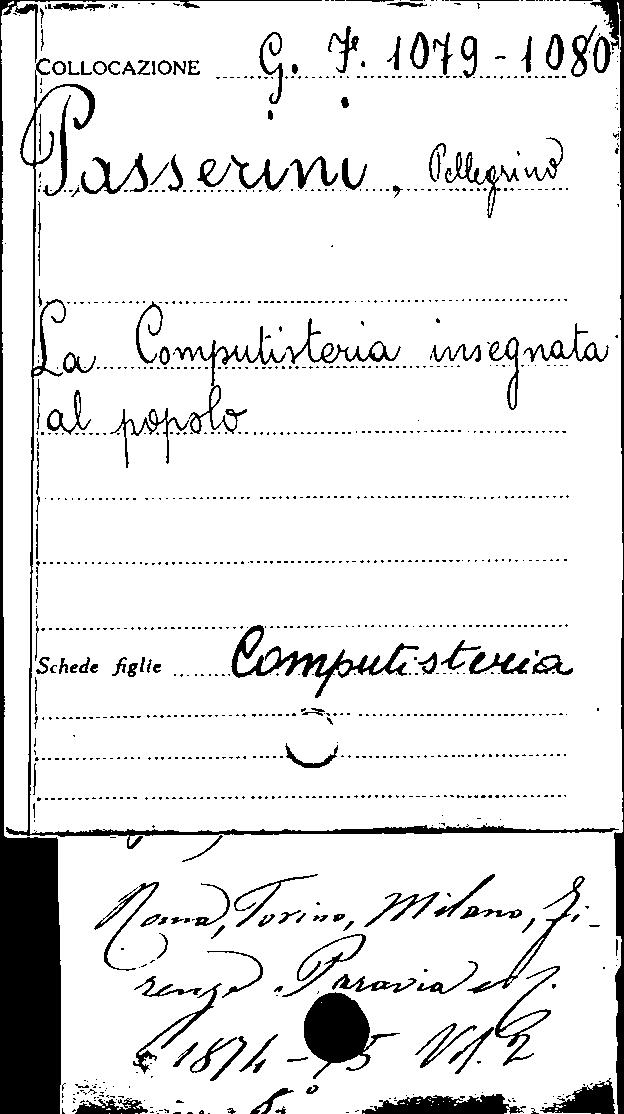 COLLOCAZIONE G. F. 1079-1080
Passerini, Pellegrino
La Computisteria insegnata
al popolo
Schede figlie Computisteria
Roma, Torino, Milano, Fi-
renze Paravia e C.
1874-75 Vol. 2
8°